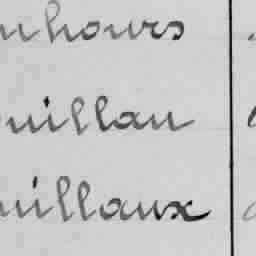 nhours
uillau
uillaux